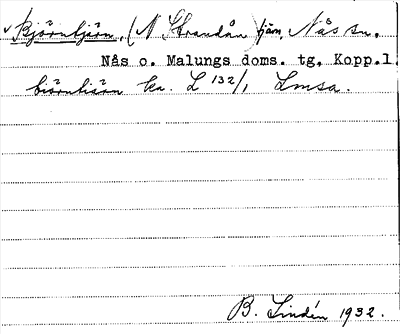 Björntjärn, (N Strandån) tjärn, Nås sn.
Nås o. Malungs doms. tg, Kopp.l.
björntjärn ka. L 132/1 Lmsa.
B. Lindén 1932.